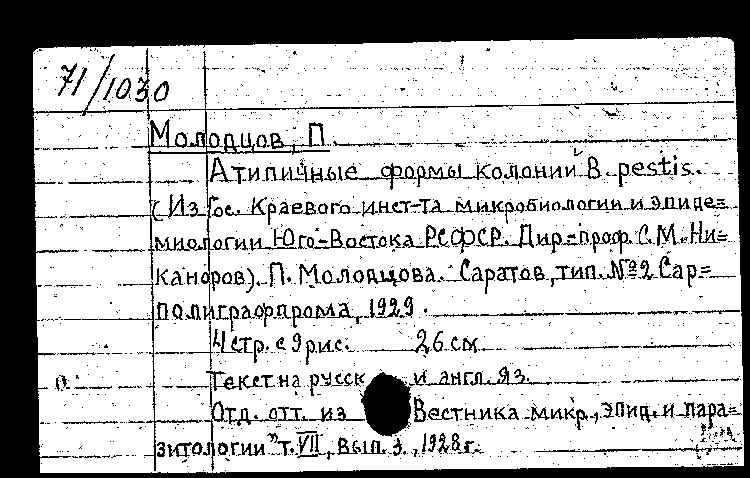 71/1030
Молодцов, П.
Атипичные формы колоний B. pestis.
(Из Гос. Краевого инст-та микробиологии и эпиде=
миологии Юго-Востока РСФСР. Дир-проф. С.М. Ни=
каноров). П. Молодцова. Саратов, тип. №2 Сар=
полиграфпрома, 1929.
4 стр. с 9 рис. 26 см
Текст на русск и англ. яз.
Отд. отт. из Вестника микр., эпид. и пара=
зитологии" т. VII, вып. 3, 1928 г.